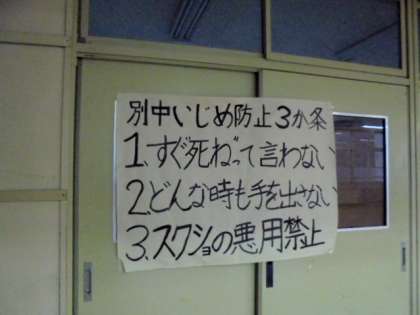 別中いじめ防止3か条
1.すぐ死ねって言わない
2.どんな時も手を出さない
3.スクショの悪用禁止